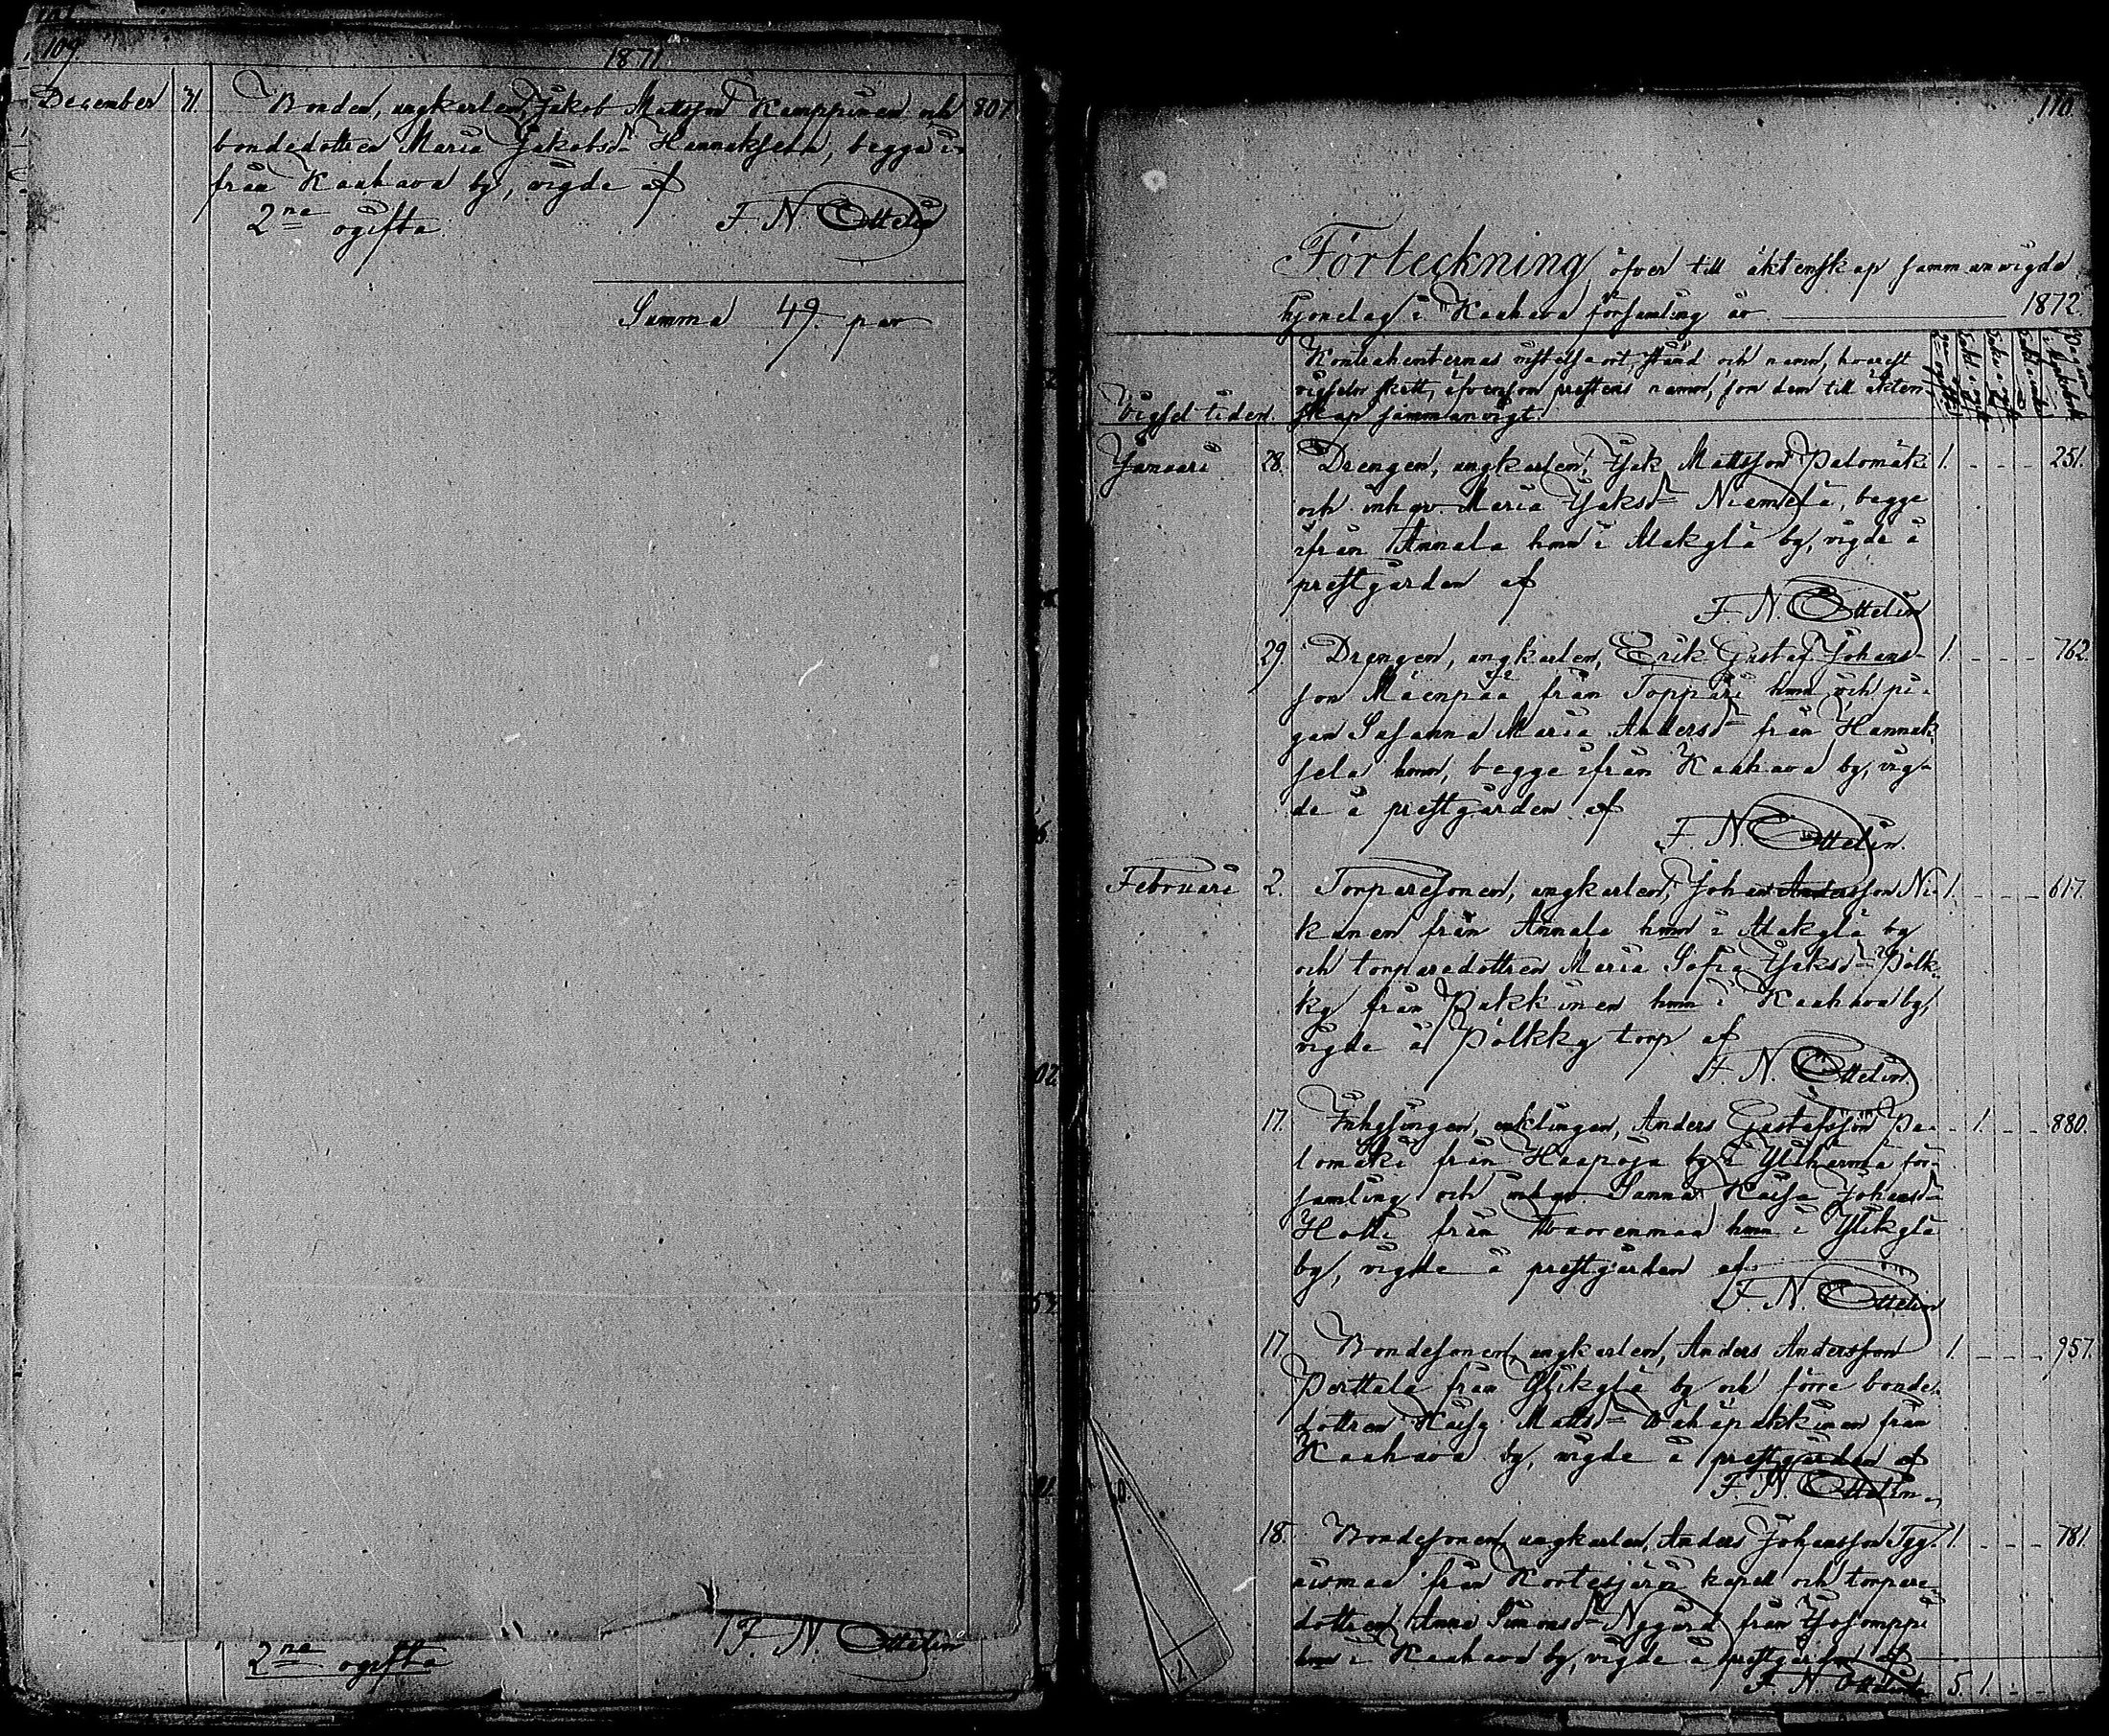 109.
1871.
December 31. Bonden, ungkarlen, Jakob Mattsson Kamppinen och 807.
bondedottren Maria Jakobsdr Hannuksela, begge i-
från Kauhava by, vigde af
2ne ogifta. F. N. Ottelin
Summa 49. par
F. N. Ottelin
2ne ogifta
110.
Förteckning öfver till äktenskap sammanvigda
hjonelag i Kauhava församling år 1872.
Kontrahenternas vistelseort, stånd och namn, hvarest
vigseln skett, äfvensom prestens namn, som dem till äkten-
Vigseltiden. skap sammanvigt.
Januari 28. Drengen, ungkarlen, Isak Mattsson Palomäki 1. - - - 251.
och inh qv Maria Isaksdr Niemelä, begge
ifrån Annala hmn i Alakylä by, vigde i
prestgården af
F. N. Ottelin
29. Drengen, ungkarlen, Erik Gustaf Johans- 1. - - - 762.
son Mäenpää från Toppari hmn och pi-
gan Susanna Maria Andersdr från Hannuk-
sela hmn, begge ifrån Kauhava by, vig-
de i prestgården af
F. N. Ottelin.
Februari 2. Torparesonen, ungkarlen, Johan Andersson Ni- 1. - - - 617.
kunen från Annala hmn i Alakylä by
och torparedottren Maria Sofia Isaksdr Pölk-
ky från Pukkinen hmn i Kauhava by,
vigde å Pölkky torp af
F. N. Ottelin
17. Inhysingen, enklingen, Anders Gustafsson Pa- - 1. - - 880.
lomäki från Haapoja by i Ylihärmä för-
samling och inh qv Sanna Kaisa Johansdr
Hotti från Wuorenmaa hmn i Ylikylä
by, vigde i prestgården af
F. N. Ottelin
17. Bondesonen, ungkarlen, Anders Andersson 1. - - - 957.
Perttala från Ylikylä by och förre bonde-
dottren Kaisa Mattsdr Wähäpukkinen från
Kauhava by, vigde i prestgården af
F. N. Ottelin
18. Bondesonen, ungkarlen, Anders Johansson 1. - - - 781.
från Kortesjärvi kapell och torpare-
dottren Anna Simonsdr Nygård från
hmn i Kauhava by, vigde i prestgården af
F. N. Ottelin 5. 1. - -